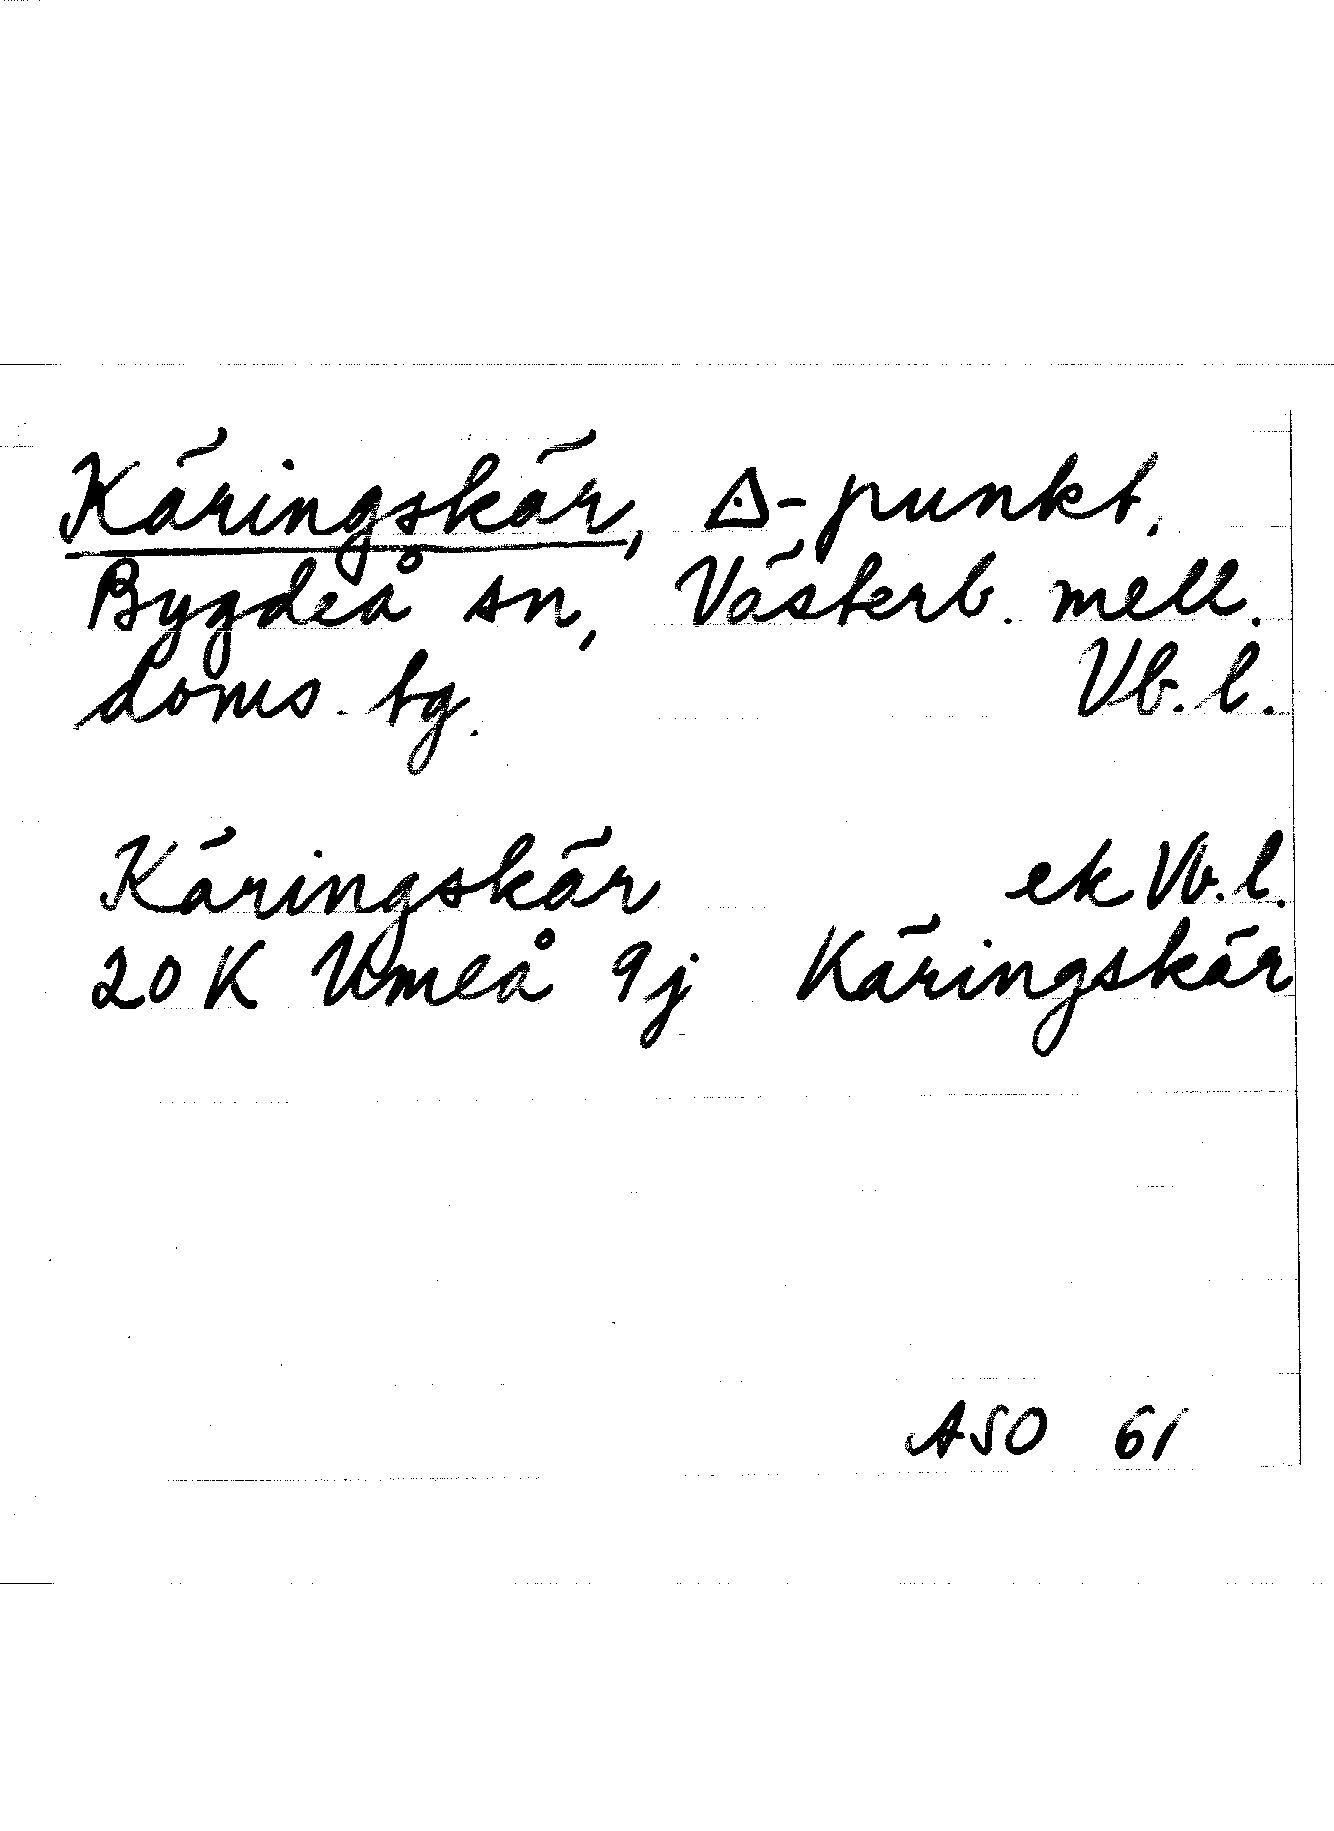 Käringskär, ◬-punkt,
Bygdeå sn, Västerb. mell.
doms. tg. Vb. l.
Käringskär ek Vb. l.
20 K Umeå 9j Käringskär
ASO 61